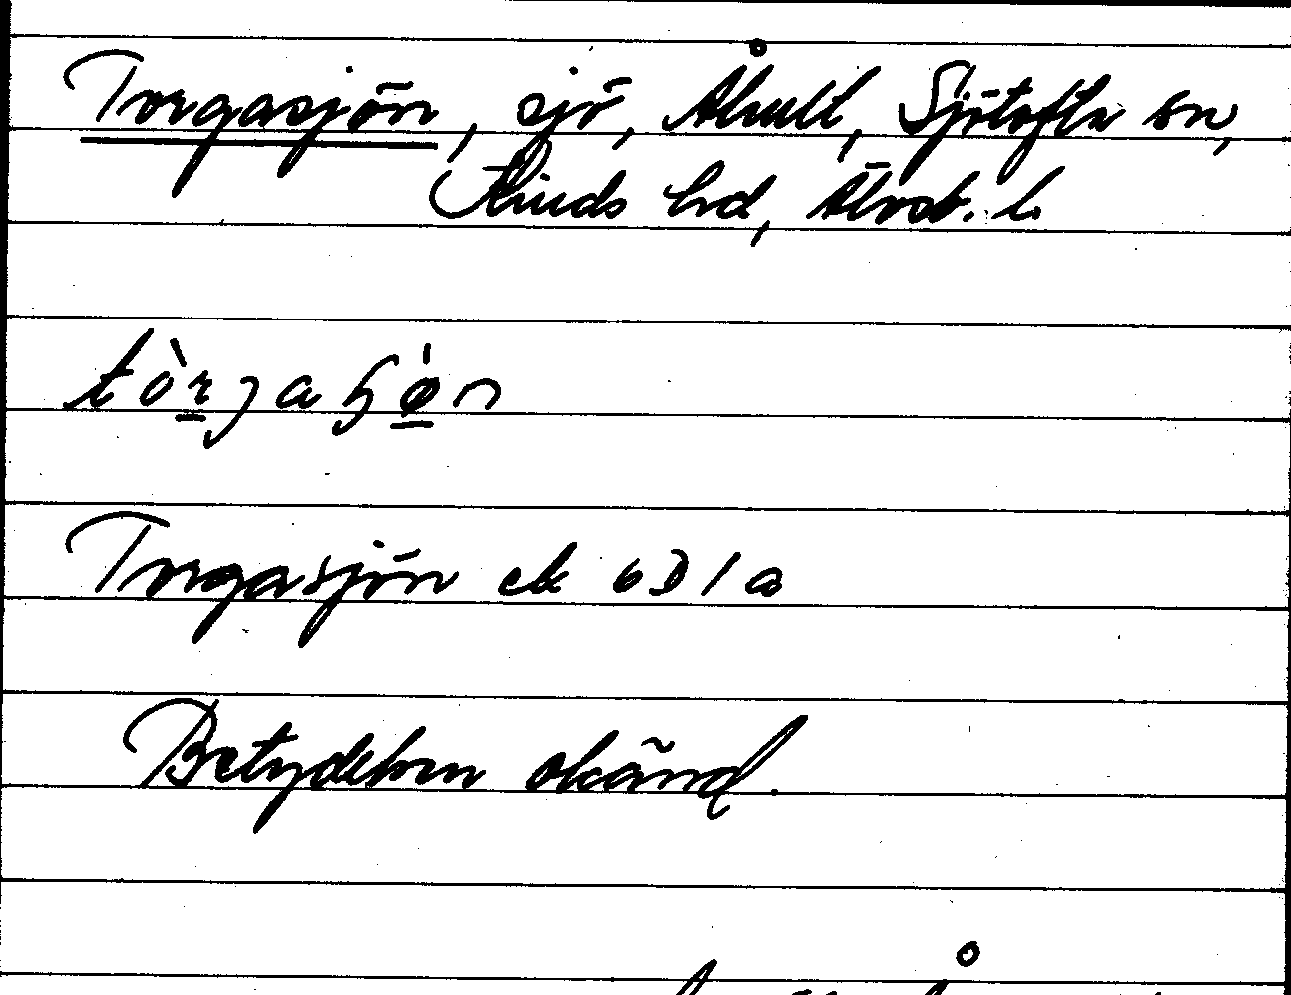 Torgasjön, sjö, Åhult, Sjötofta sn,
Kinds hd, Älvsb. l.
tòrgaʃø̀n
Torgasjön ek 6D1a
Betydelsen okänd.